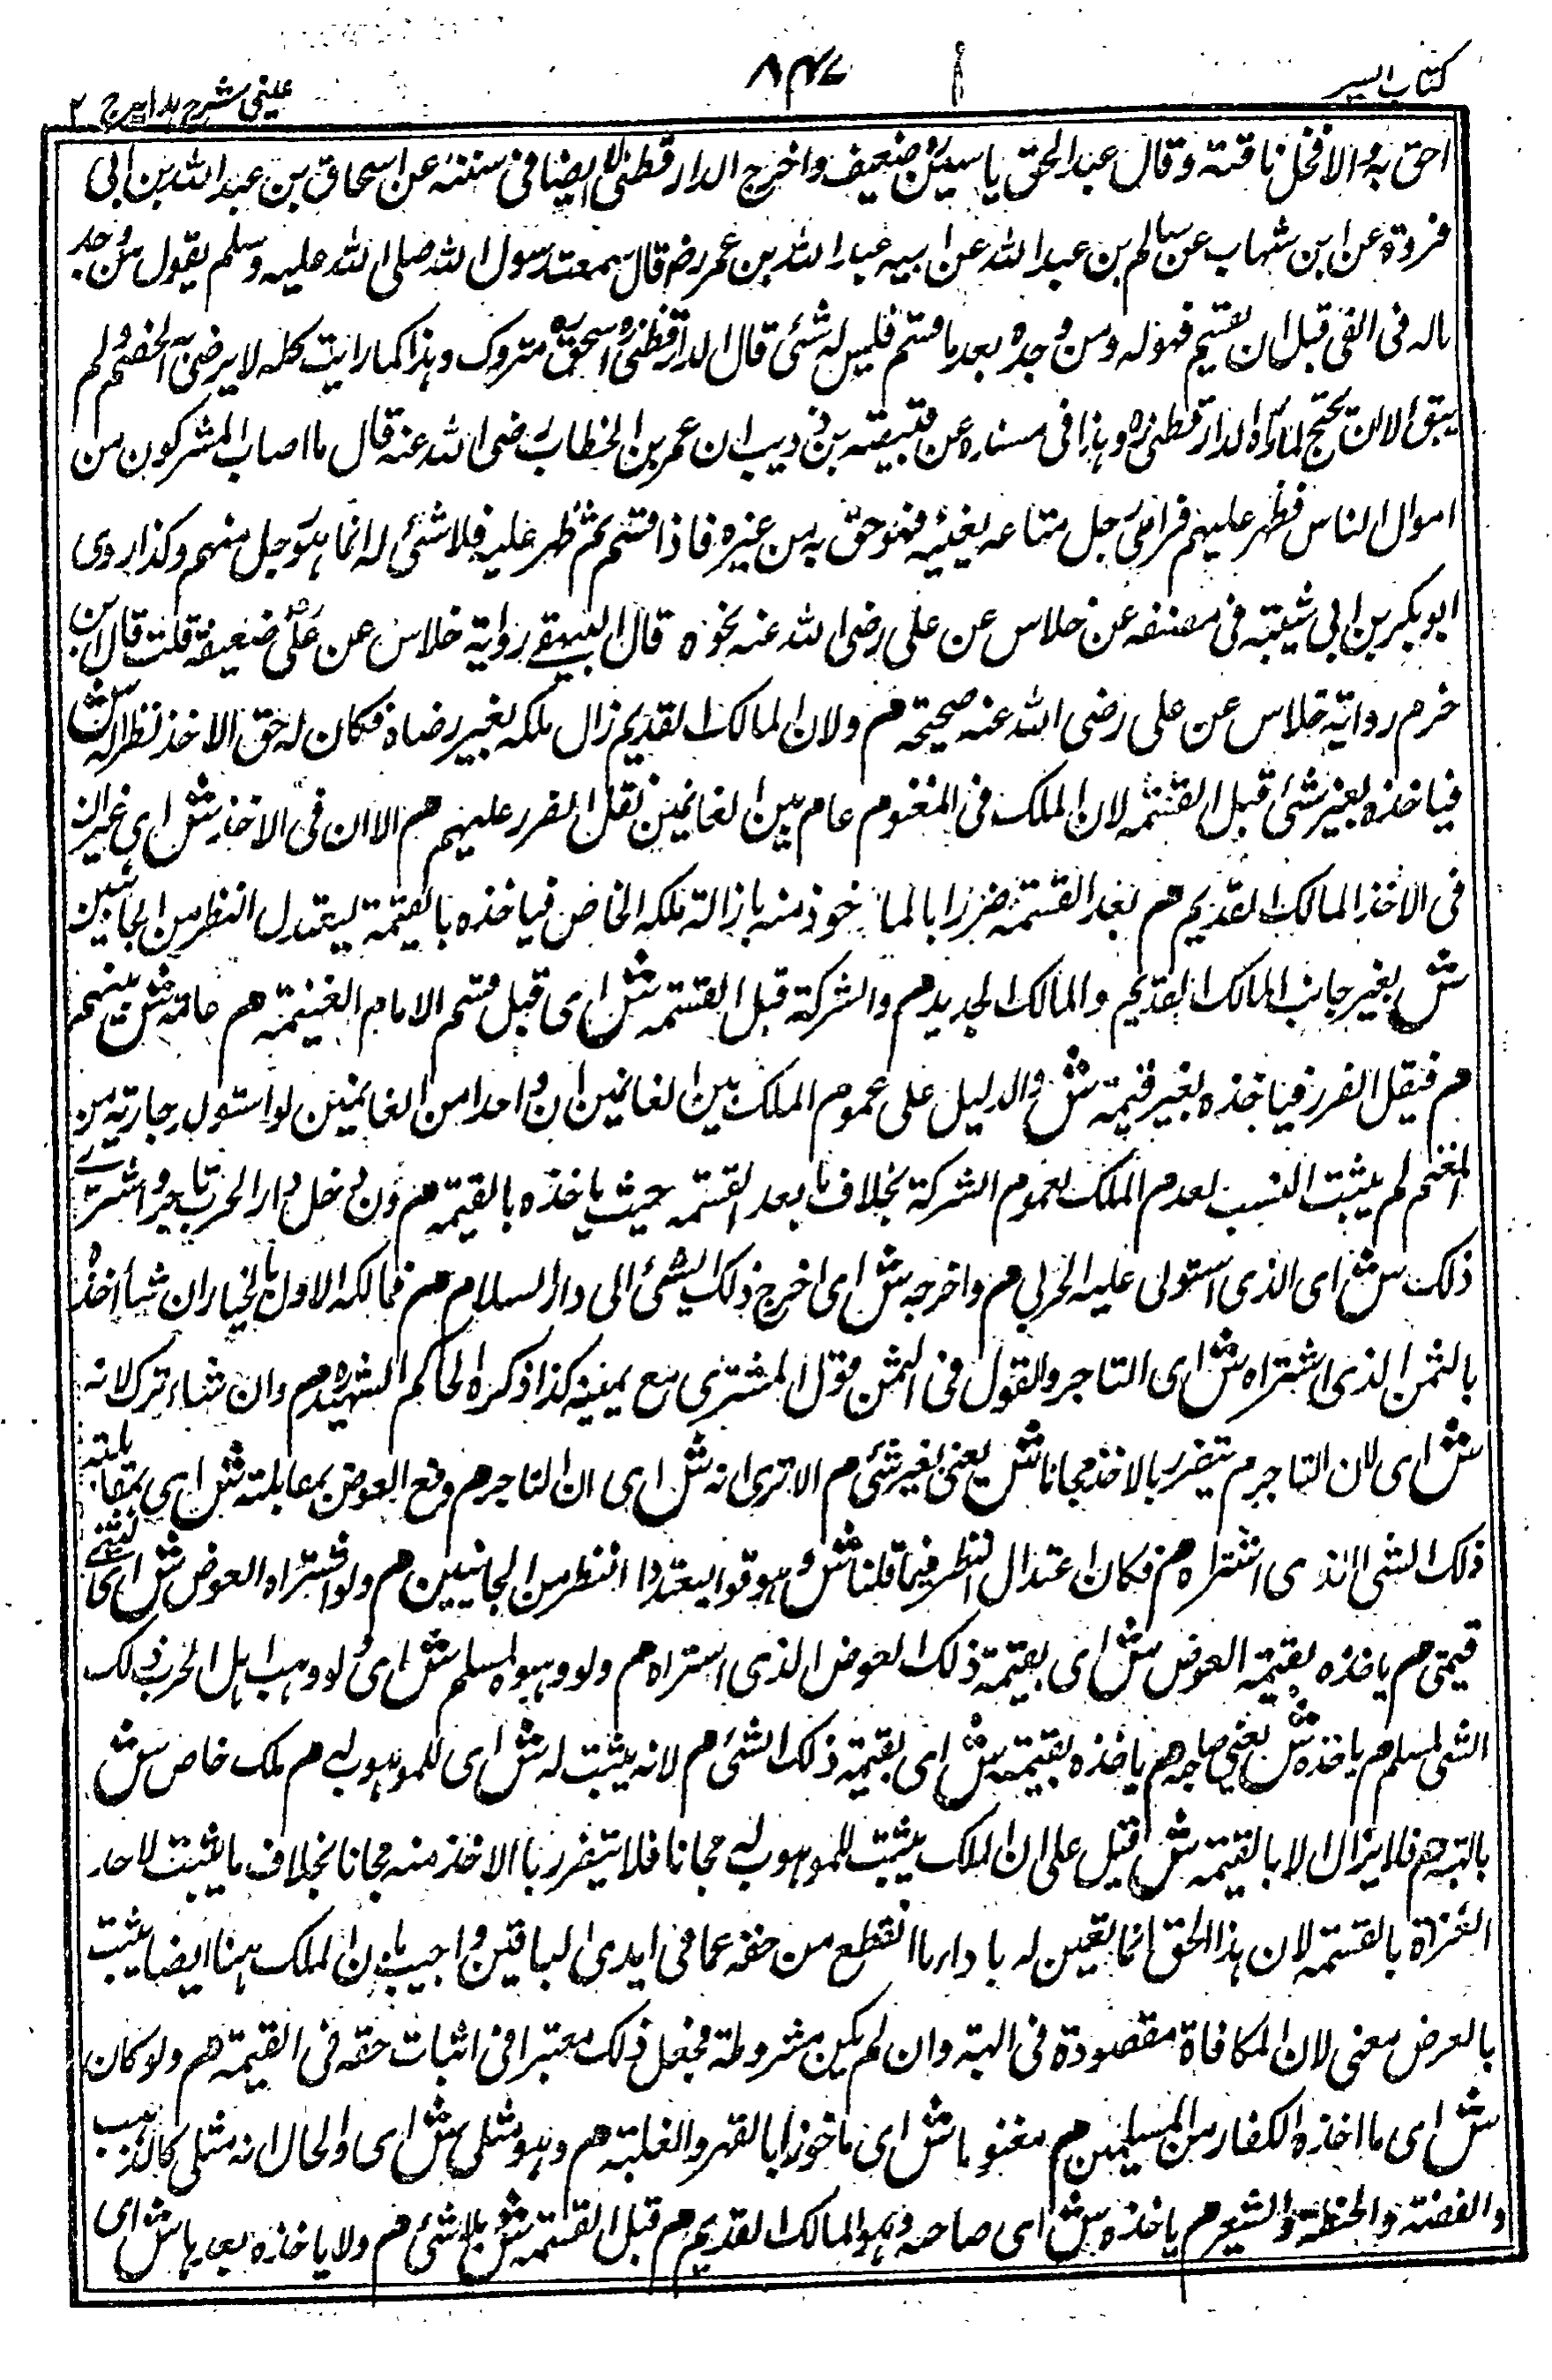 كتاب السير
٨٣٧
عينى شرح هدايه ج ٢
احق به والا فخل ناقته وقال عبد الحق ياسين ضعيف واخرج الدارقطنى ايضا فى سننه عن اسحاق بن عبد الله بن ابى
فروة عن ابن شهاب عن سالم بن عبد الله عن ابيه عبد الله بن عمر رض قال سمعت رسول الله صلى الله عليه وسلم يقول من وجد
ماله فى الفئ قبل ان يقسم فهو له ومن وجده بعد ما قسم فليس له شئ قال الدارقطنى اسحق متروك وهذا كما رايت كله لا يرضى به الخصم لم
يبق الا ان يحتج لما رواه الدارقطنى وهذا فى مسنده عن قبيصة بن ذويب ان عمر بن الخطاب رضى الله عنه قال ما اصاب المشركون من
اموال الناس فظهر عليهم فرأى رجل متاعه بعينه فهو احق به من غيره فاذا قسم ثم ظهر عليه فلا شئ له انما هو رجل منهم وكذا روى
ابو بكر بن ابى شيبة فى مصنفه عن خلاس عن على رضى الله عنه نحوه قال البيهقى رواية خلاس عن على رض ضعيفة قلت قال ابن
حزم رواية خلاس عن على رضى الله عنه صحيحة م ولان المالك القديم زال ملكه بغير رضاه فكان له حق الاخذ نظرا له ش
فياخذه بغير شئ قبل القسمة لان الملك فى المغنوم عام بين الغانمين فقل الضرر عليهم م الا ان فى الاخذ ش اى غير ان
فى الاخذ المالك القديم م بعد القسمة ضررا بالماخوذ منه بازالة ملكه الخاص فياخذه بالقيمة ليعتدل النظر من الجانبين
ش بغير جانب المالك القديم والمالك الجديد م والشركة قبل القسمة ش اى قبل قسم الامام الغنيمة م عامة ش بينهم
م فيقل الضرر فياخذه بغير قيمة ش والدليل على عموم الملك بين الغانمين ان واحدا من الغانمين لو استولد جارية من
المغنم لم يثبت النسب لعدم الملك لعموم الشركة بخلاف ما بعد القسمة حيث ياخذه بالقيمة م وان دخل دار الحرب تاجر واشترى
ذلك ش اى الذى استولى عليه الحربى م واخرجه ش اى اخرج ذلك الشئ الى دار السلام م فمالكه الاول بالخيار ان شاء اخذه
بالثمن الذى اشتراه ش اى التاجر والقول فى الثمن قول المشترى مع يمينه كذا ذكره الحاكم الشهيد م وان شاء ترك لانه
ش اى لان التاجر م يتضرر بالاخذ مجانا ش يعنى بغير شئ م الا ترى انه ش اى ان التاجر م دفع العوض بمقابلته ش اى بمقابلة
ذلك الشئ الذى اشتراه م فكان اعتدال النظر فيما قلنا ش وهو قوله ليعتدل النظر من الجانبين م ولو اشتراه العوض ش اى بشئ
قيمتى م ياخذه بقيمة العوض ش اى بقيمة ذلك العوض الذى اشتراه م ولو وهبوه لمسلم ش اى ولو وهب اهل الحرب ذلك
الشئ لمسلم م ياخذه ش يعنى صاحبه م ياخذه بقيمته ش اى بقيمة ذلك الشئ م لانه يثبت له ش اى للموهوب له م ملك خاص ش
بالهبة م فلا يزال الا بالقيمة ش قيل على ان الملك يثبت للموهوب له مجانا فلا يتضرر بالاخذ منه مجانا بخلاف ما يثبت لاحد
الغزاة بالقسمة لان هذا الحق انما تعين له بازاء ما انقطع من حقه عما فى ايدى الباقين واجيب بان الملك ههنا ايضا يثبت
بالعرض معنى لان المكافاة مقصودة فى الهبة وان لم يكن مشروطة فجعل ذلك معتبرا فى اثبات حقه فى القيمة م ولو كان
ش اى ما اخذه الكفار من المسلمين م مغنوما ش اى ماخوذا بالقهر والغلبة م وهو مثلى ش اى والحال انه مثلى كالذهب
والفضة والحنطة والشعير م ياخذه ش اى صاحبه وهو المالك القديم م قبل القسمة ش بلا شئ م ولا ياخذه بعدها ش اى